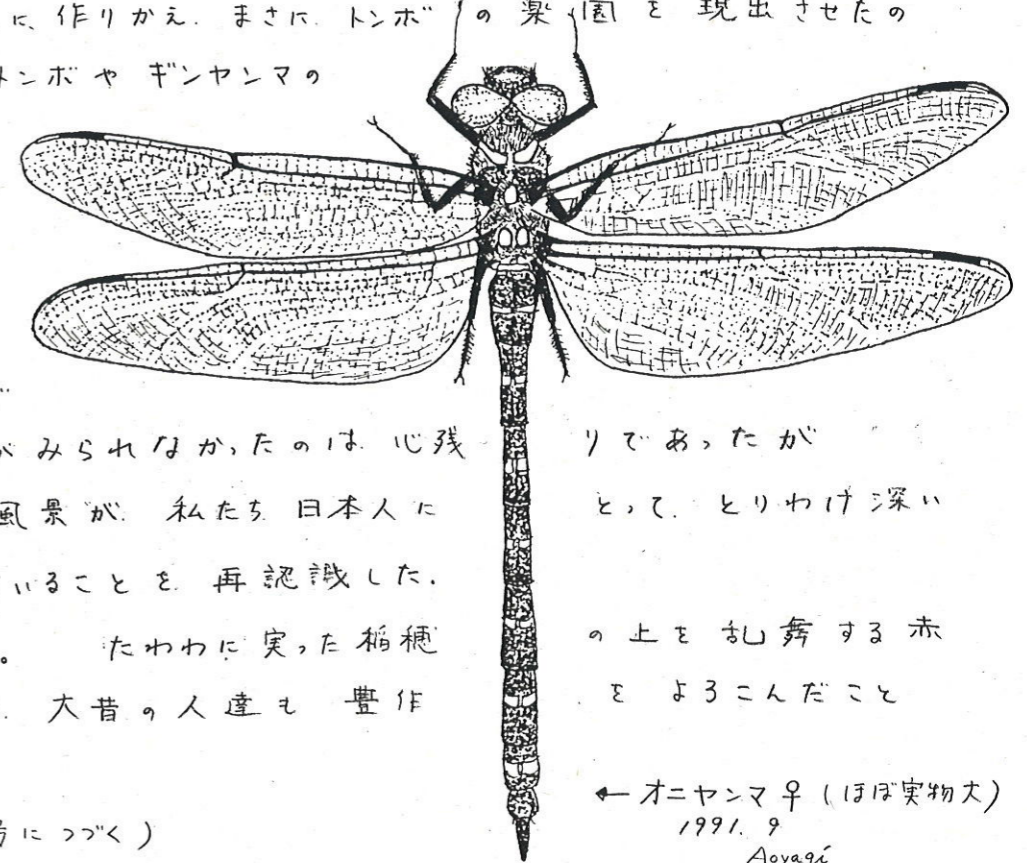 に、作りかえ、まさに、トンボの楽園を現出させたの
トンボやギンヤンマの
がみられなかったのは、心残りであったが
風景が、私たち日本人にとって、とりわけ深い
いることを、再認識した.
。 たわわに実った稲穂の上を乱舞する赤
. 大昔の人達も豊作をよろこんだこと
← オニヤンマ♀(ほぼ実物大)
1991. 9
につづく)
Aoyagi